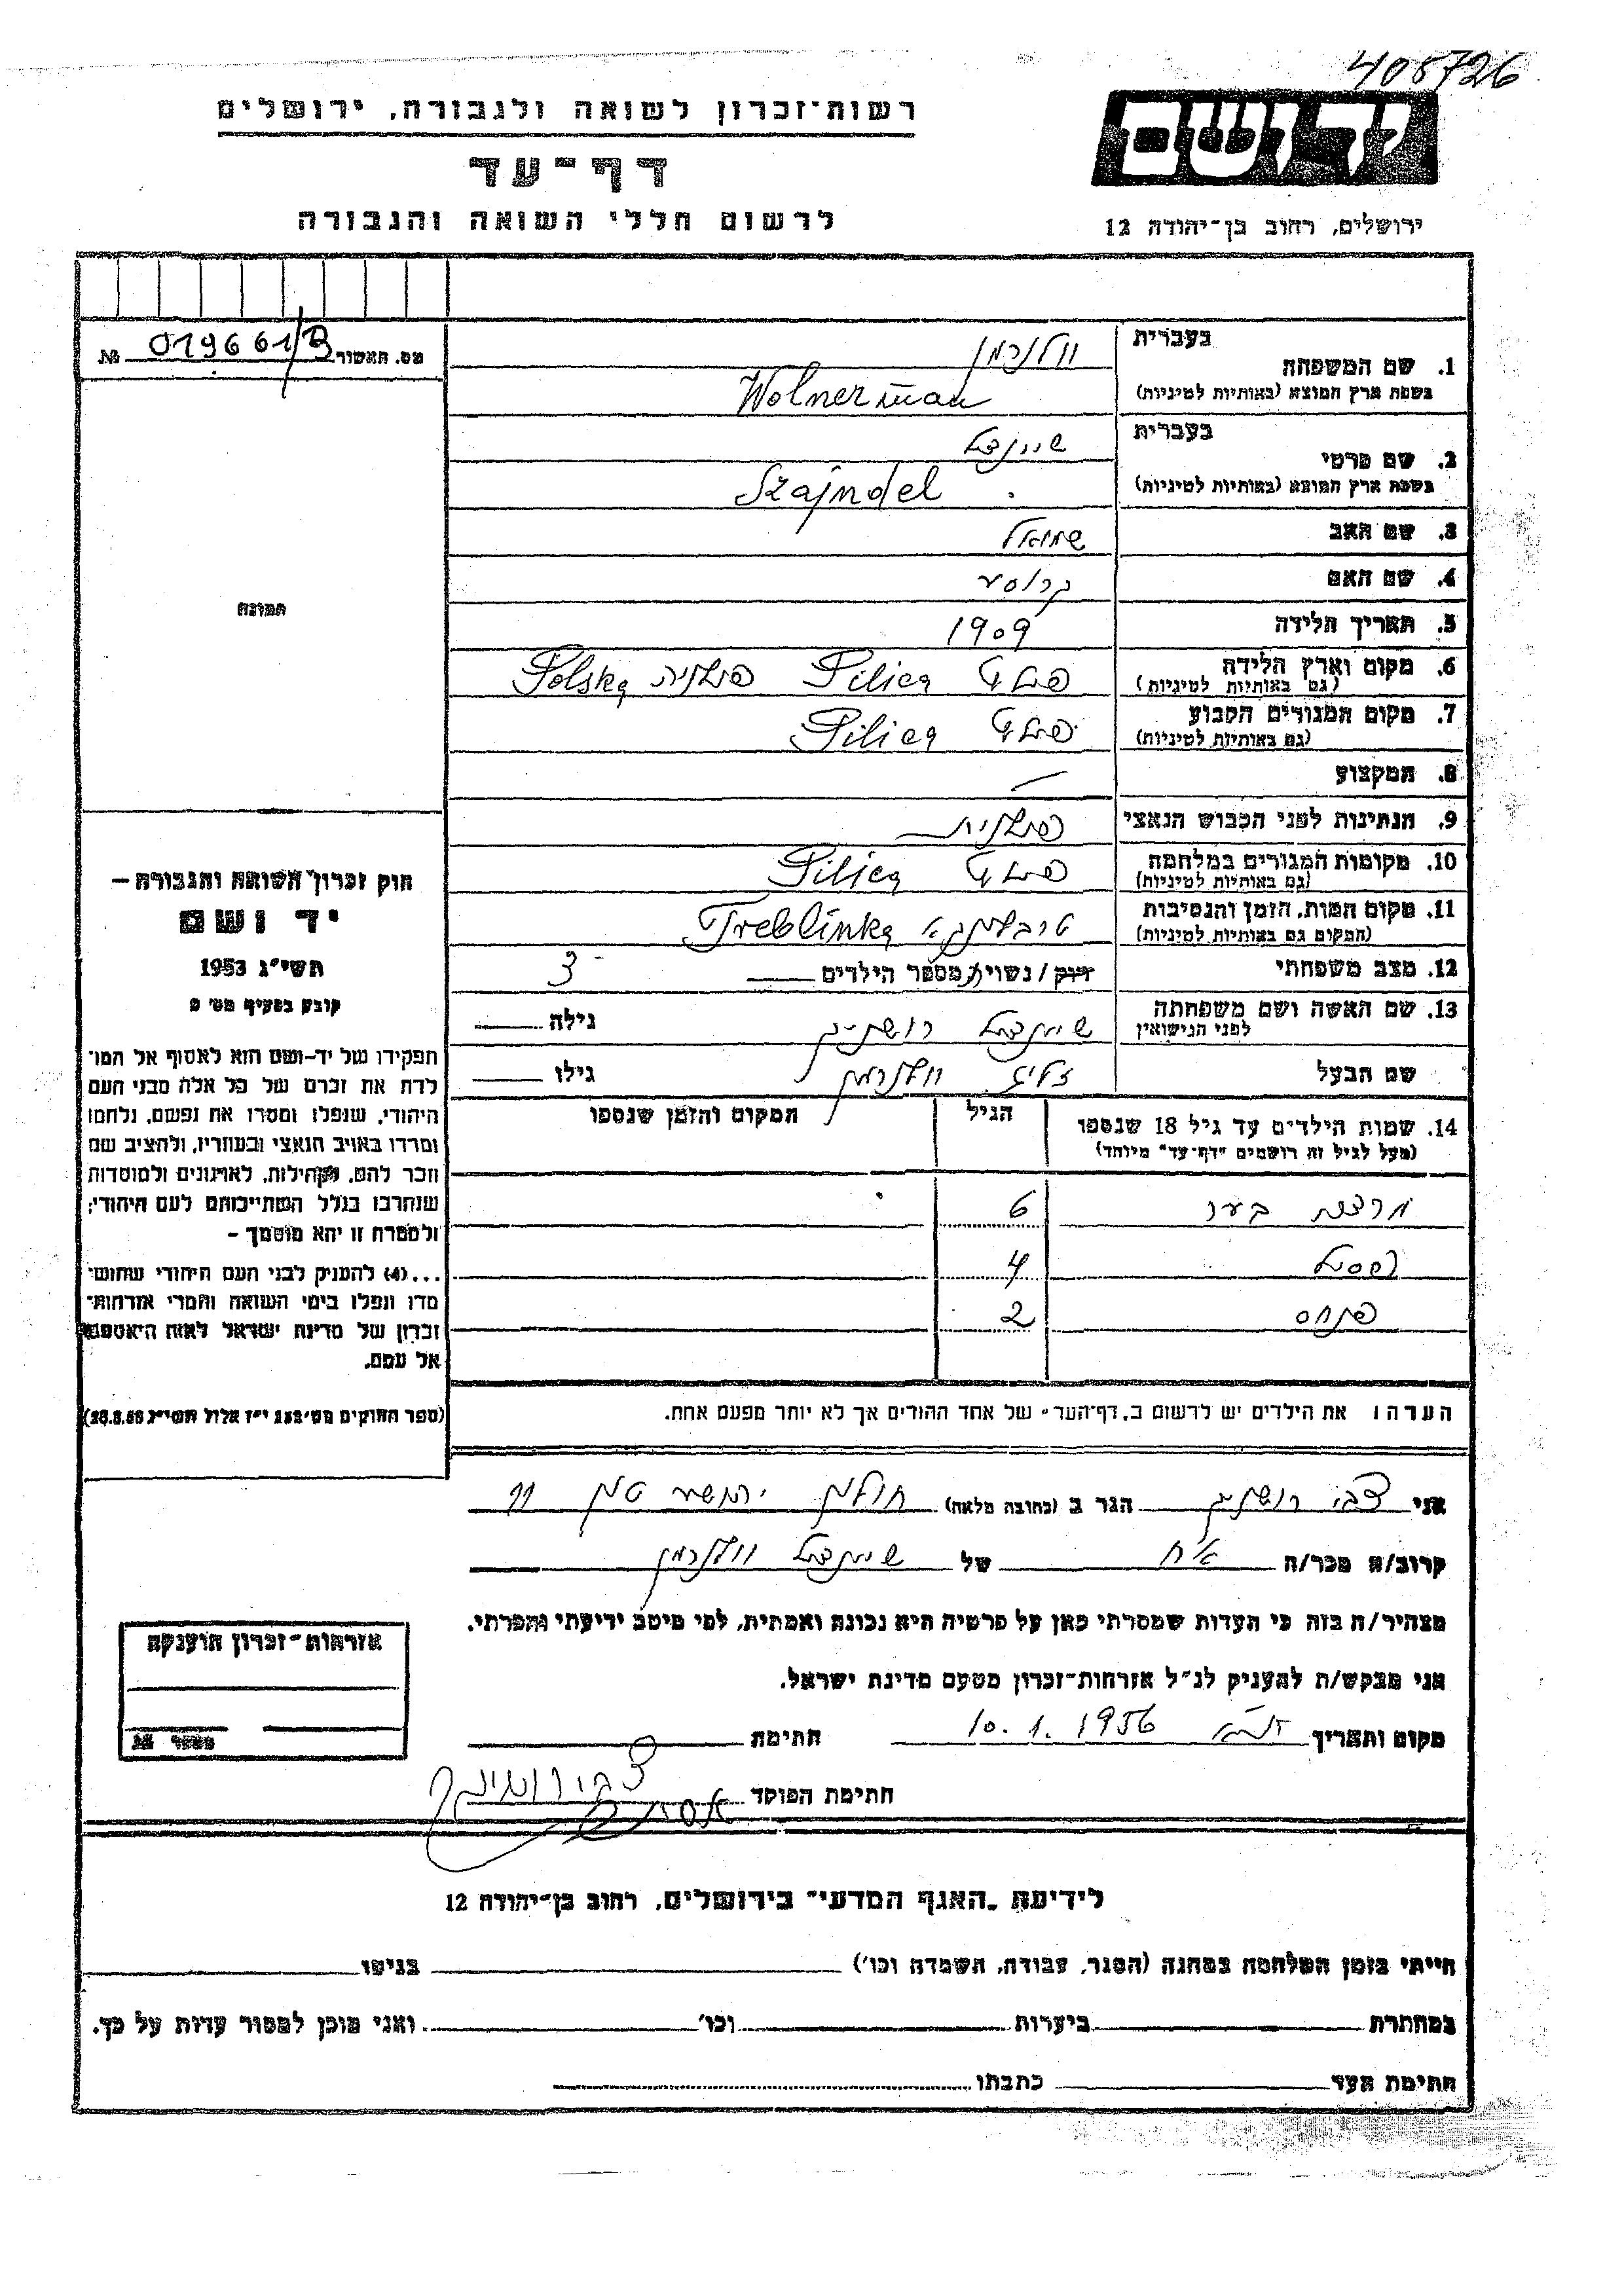 408726
רשות־זכרון לשואה ולגבורה, ירושלים
דף־עד
לרשום חללי השואה והגבורה
יד ושם
ירושלים, רחוב בן־יהודה 12
מס. האשור 019661/B №
תמונה
חוק זכרון השואה והגבורה –
יד ושם
תשי"ג 1953
קובע בסעיף מס' 2
תפקידו של יד-ושם הוא לאסוף אל המו־
לדת את זכרם של כל אלה מבני העם
היהודי, שנפלו ומסרו את נפשם, נלחמו
ומרדו באויב הנאצי ובעוזריו, ולהציב שם
וזכר להם, לקהילות, לארגונים ולמוסדות
שנחרבו בגלל השתייכותם לעם היהודי;
ולמטרה זו יהא מוסמך –
...(4) להעניק לבני העם היהודי שהוש־
מדו ונפלו בימי השואה והמרי אזרחות־
זכרון של מדינת ישראל לאות היאספם
אל עמם.
(ספר החוקים מס' 132 י"ז אלול תשי"ג 28.8.53)
1. שם המשפחה בעברית וולנרמן
בשפת ארץ המוצא (באותיות לטיניות) Wolnerman
2. שם פרטי בעברית שיינדל
בשפת ארץ המוצא (באותיות לטיניות) Szajndel
3. שם האב שמואל
4. שם האם
5. תאריך הלידה 1909
6. מקום וארץ הלידה (גם באותיות לטיניות) פילץ Pilica פולניה Polska
7. מקום המגורים הקבוע (גם באותיות לטיניות) פילץ Pilica
8. המקצוע —
9. הנתינות לפני הכבוש הנאצי פולנית
10. מקומות המגורים במלחמה (גם באותיות לטיניות) פילץ Pilica
11. מקום המות, הזמן והנסיבות (המקום גם באותיות לטיניות) טרבלינקא Treblinka
12. מצב משפחתי רווק / נשוי/ה מספר הילדים 3
13. שם האשה ושם משפחתה לפני הנישואין שיינדל גילה
שם הבעל זליג וולנרמן גילו
14. שמות הילדים עד גיל 18 שנספו הגיל המקום והזמן שנספו
(מעל לגיל זה רושמים "דף־עד" מיוחד)
6
4
פנחס 2
הערה: את הילדים יש לרשום ב"דף־העד" של אחד ההורים אך לא יותר מפעם אחת.
אני צבי הגר ב (כתובה מלאה) חולון 11
קרוב/ה מכר/ה אח של שיינדל וולנרמן
מצהיר/ה בזה כי העדות שמסרתי כאן על פרטיה היא נכונה ואמתית, לפי מיטב ידיעתי והכרתי.
אני מבקש/ת להעניק לנ"ל אזרחות־זכרון מטעם מדינת ישראל.
מקום ותאריך 10.1.1956 חתימת
חתימת הפוקד
אזרחות־זכרון הוענקה
מספר №
לידיעת "האגף המדעי" בירושלים, רחוב בן־יהודה 12
הייתי בזמן המלחמה במחנה (הסגר, עבודה, השמדה וכו') בגיטו
במחתרת ביערות וכו' ואני מוכן למסור עדות על כך.
חתימת העד כתבתו